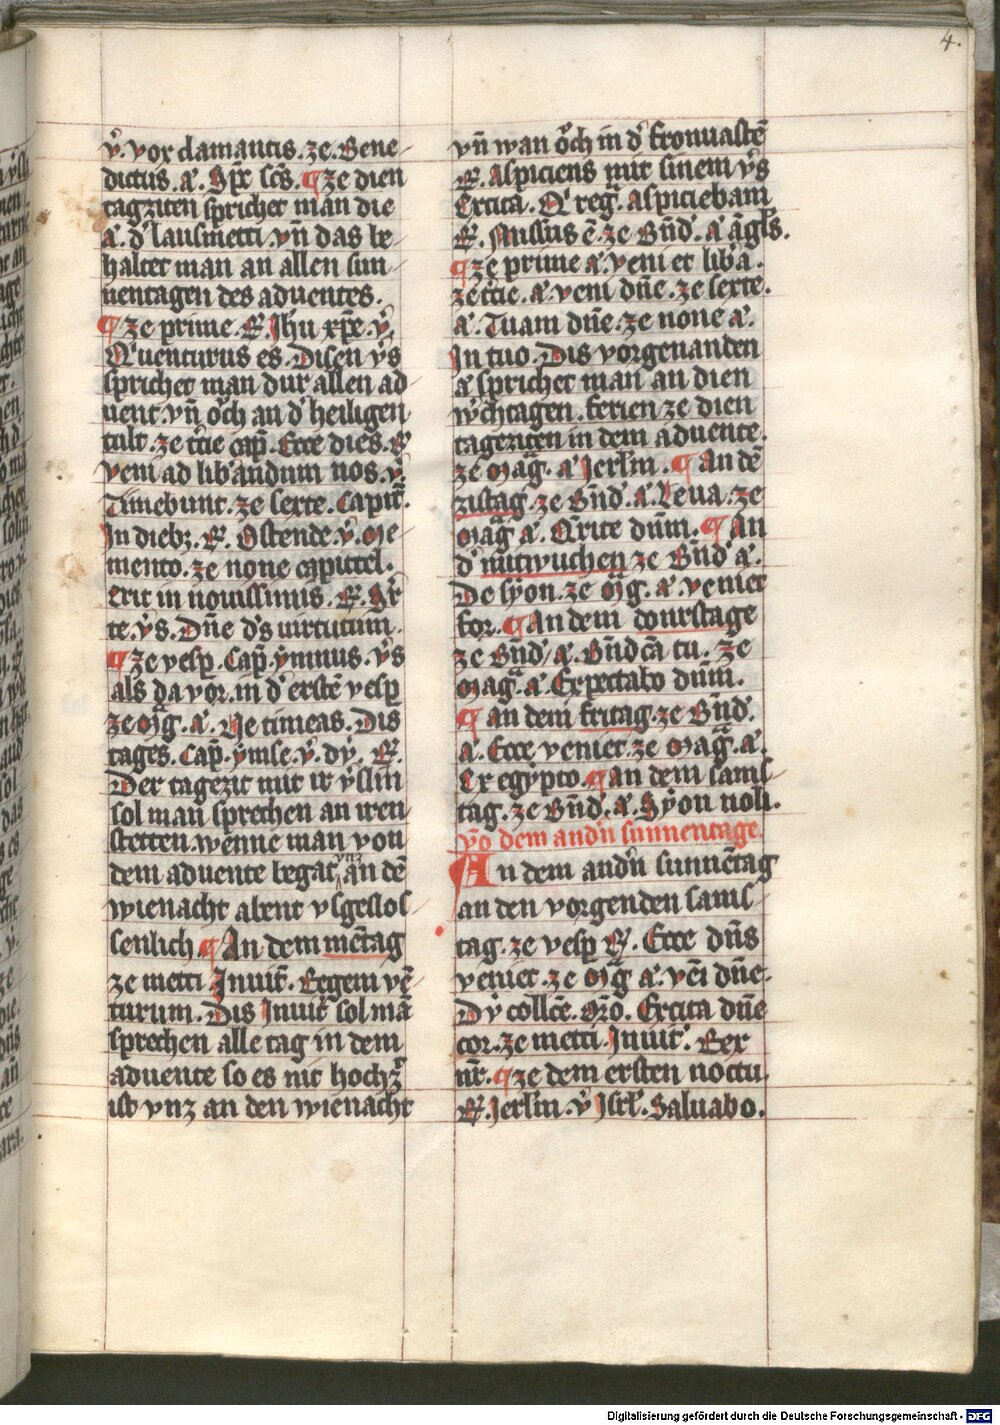 4.
v᷎. vox clamantis. ze. Bene
dictus. a᷎. Spc̄ scs̄. ¶ ze dien
tagziten sprichet man die
a᷎. d᷎ lausmetti. vn̄ das be
haltet man an allen sun
nentagen des aduentes.
¶ ze prime. R᷎. Ihū xp̄e. v᷎.
Q᷎uenturus es. Disen v᷎s
sprichet man dur allen ad
uent. vn̄ oͮch an d᷎ heiligen
tult. ze t᷎cie cap̄. Ecce dies. R᷎
veni ad lib᷎andum nos. v᷎.
Timebunt. ze sexte. Capit᷎.
In dieb₃. R᷎. Ostende. v᷎. Me
mento. ze none capittel.
erit in nouissimis. R᷎.
te. v᷎s. Dn̄e ds̄ uirtutum.
¶ ze vesp̄. Cap̄. ymnus. v᷎s
als da vor. in d᷎ erstē vesp̄
ze mag̃. a᷎. Ne timeas. Dis
tages. Cap̄. ymse. v᷎. dy. R᷎.
Der tagezit mit ir
sol man sprechen an iren
stetten. wenne man von
dem aduente begat, an dē
wienacht abent vsgeslos
senlich ¶ An dem mētag
ze metti Inuit᷎. Regem vē
turum. Dis Inuit᷎ sol mā
sprechen alle tag in dem
aduente so es nit hochz᷎
ist vnz an den wienacht
vn̄ wan oͮch in d᷎ fronuastē
R᷎. Aspiciens mit sinem v᷎s
Excita. Q᷎ reg̃. aspiciebam
R᷎. Missus ē. ze Bn̄d᷎. a᷎ āgl̄s.
¶ ze prime a᷎. veni et lib᷎a.
ze t᷎cie. a᷎. veni dn̄e. ze sexte.
a᷎. Tuam dn̄e. ze none a᷎.
In tuo. Dis vorgenanden
a᷎ sprichet man an dien
wͤchtagen. ferien ze dien
tageziten in dem aduente.
ze mag̃. a᷎ Ierl̄m. ¶ An dē
zistag. ze Bn̄d᷎. a᷎. Leua. ze
mag̃ a᷎. Q᷎rite dn̄m. ¶ An
d᷎ mitwuchen ze Bn̄d᷎ a᷎.
De syon. ze mg̃. a᷎. veniet
for. ¶ An dem donrstage
ze Bn̄d᷎. a᷎. Bn̄dc̄a tu. ze
mag̃. a᷎. Expectabo dn̄m.
¶ an dem fritag. ze Bn̄d᷎.
a᷎. Ecce veniet. ze mag̃. a᷎.
Ex egypto. ¶ an dem sams
tag. ze Bn̄d᷎. a᷎. Syon noli.
vō dem and᷎n sunnentage.
An dem and᷎n sunnētag
an den vorgenden sams
tag. ze vesp̄ R᷎. Ecce dn̄s
veniet. ze mg̃ a᷎. vēi dn̄e.
Dy collc̄e. Excita dn̄e
cor. ze metti. Inuit᷎. Rex
nr̄. ¶ ze dem ersten noctu.
R᷎. Ierl̄m. v᷎ Isrl̄. Saluabo.
Digitalisierung gefördert durch die Deutsche Forschungsgemeinschaft - DFG